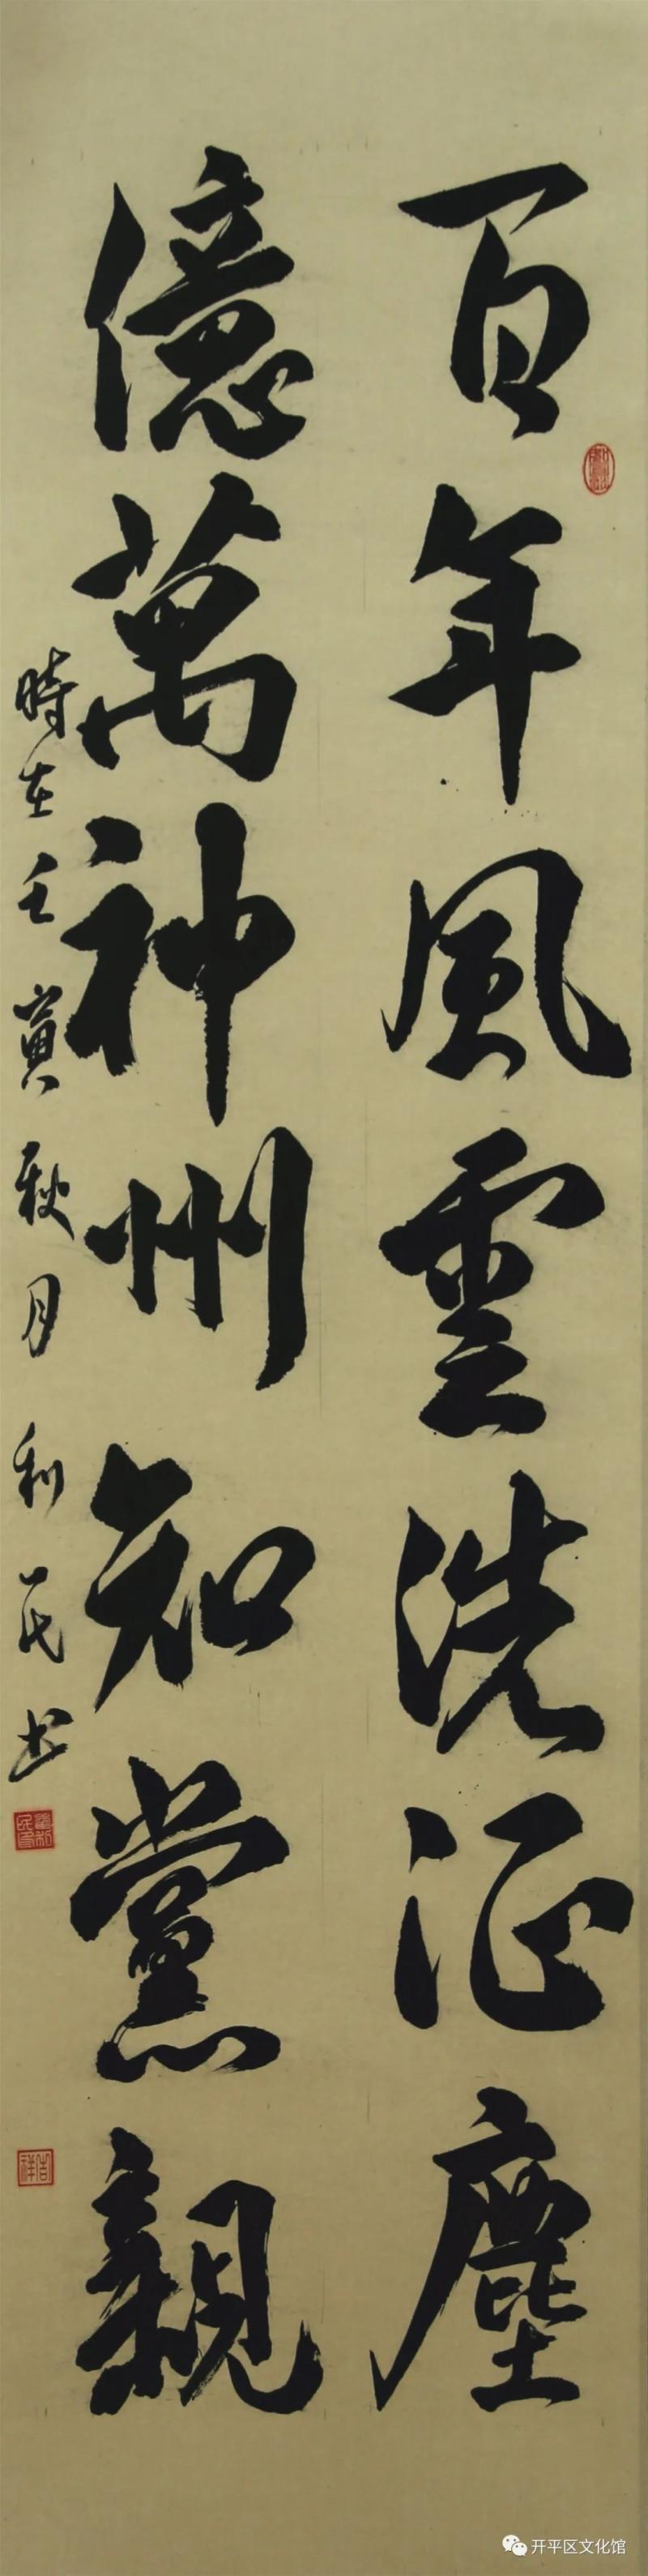 百年風雲洗征塵
億萬神州知黨親
時在壬寅秋月利民书
吉祥
开平区文化馆